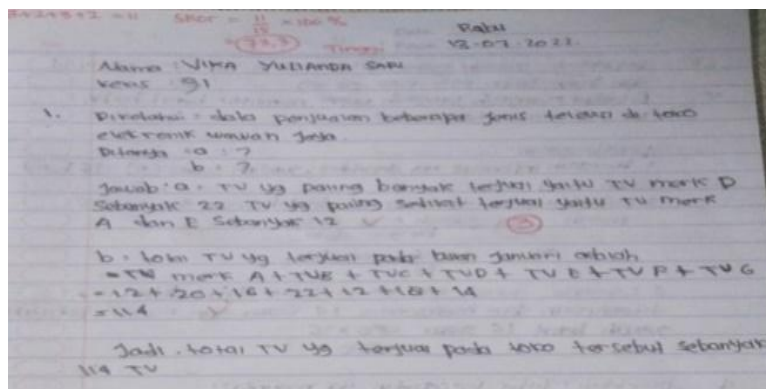 +2+5+2 = 11 SKOR = 11/15 × 100 %
= 73,3 Tinggi
Rabu
13-07-2022
Nama : VIKA YULIANDA SARI
Kelas : 91
1. Diketahui : data penjualan beberapa jenis televisi di toko
elektronik Jaya
Ditanya : a . ?
b . ?
Jawab : a . TV yg paling banyak terjual yaitu TV merk D
Sebanyak 22 TV yg paling sedikit terjual yaitu TV merk
A dan E Sebanyak 12 3
b . total TV yg terjual pada bulan Januari adalah
= TV merk A + TVB + TVC + TVD + TV E + TV F + TV G
= 12 + 20 + 16 + 22 + 12 + 18 + 14
= 114
Jadi . total TV yg terjual pada toko tersebut sebanyak
114 TV